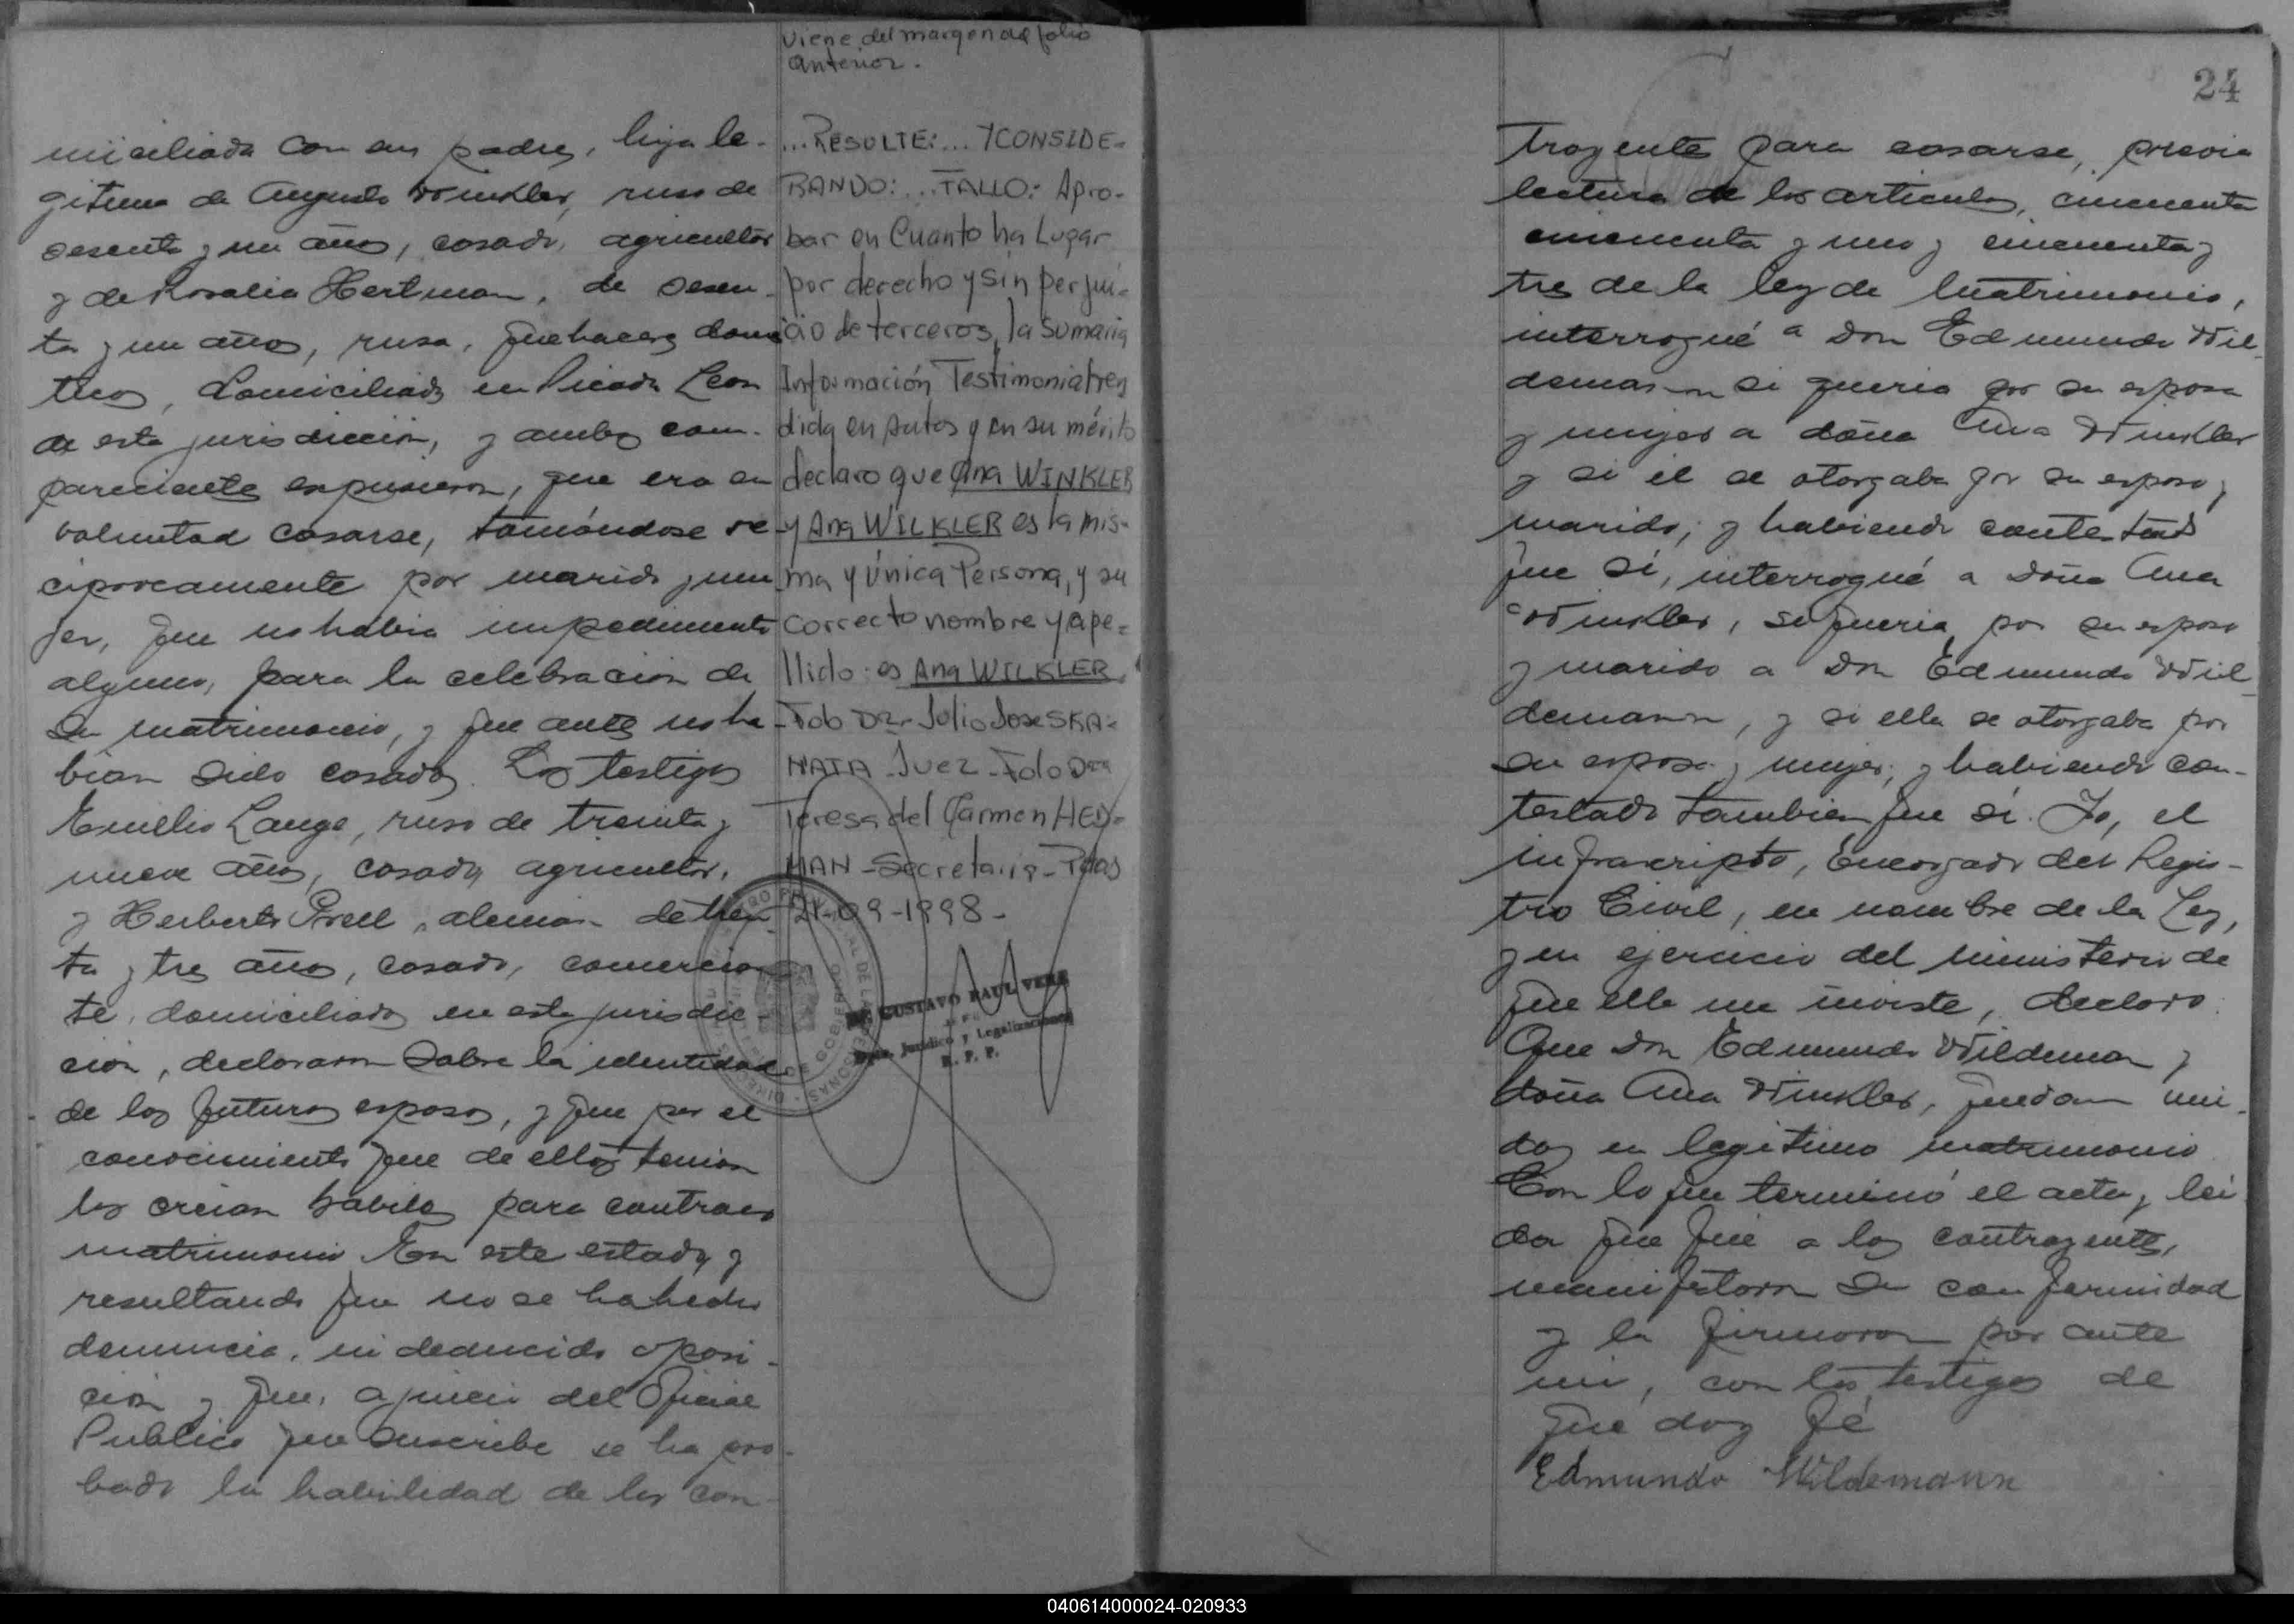 miciliada con sus padres, hija le-
gitima de Augusto Winkler, ruso de
sesenta y un años, casado, agricultor
y de Rosalia Hertman, de sesen-
ta y un años, rusa, quehaceres domes
ticos, domiciliados en Picada Leon
de esta jurisdiccion, y ambos com-
parecientes expusieron, que era su
voluntad casarse, tomándose re-
ciprocamente por marido y mu
jer, que no habia impedimento
alguno, para la celebracion de
su matrimonio, y que antes no ha-
bian sido casados. Los testigos
Emilio Lange, ruso de treinta y
nueve años, casado, agricultor,
y Herberto, aleman de trein-
ta y tres años, casado, comercian
te, domiciliados en esta jurisdic-
cion, declararon sobre la identidad
de los futuros esposos, y que por el
conocimiento que de ellos tenian
los creian habiles para contraer
matrimonio En este estado, y
resultando que no se ha hecho
denuncia, ni deducido oposi-
cion y que, a juicio del Oficial
Publico que suscribe se ha pro-
bado la habilidad de los con-
Viene del margen del folio
anterior.
...RESULTE:... YCONSIDE-
RANDO:...FALLO: Apro-
bar en Cuanto ha Lugar
por derecho y sin perjui-
cio de terceros, la Sumaria
Información Testimonial ren
dida en autos y en su mérito
declaro que Ana WINKLER
y Ana WILKLER es la mis-
ma y única Persona, y su
correcto nombre y ape-
llido: es Ana WILKLER.
Fdo Dr. Julio Jose SKA-
NATA - Juez - Fdo Dra
Teresa del Carmen HED-
MAN - Secretaria - Pdas
21-09-1998-
GUSTAVO RAUL VERE
JEFE
Dpto. Jurídico y Legalizaciones
R. P. P.
24
trayentes para casarse, previa
lectura de los articulos, cincuenta
cincuenta y uno y cincuenta y
tres de la ley de Matrimonio,
interrogué a Don Edmundo Wil-
demann si queria por su esposa
y mujer a doña Ana Winkler
y si él se otorgaba por su esposo y
marido; y habiendo contestado
que Sí, interrogué a Doña Ana
Winkler, si queria por su esposo
y marido a Don Edmundo Wil-
demann, y si ella se otorgaba por
su esposa y mujer, y habiendo con-
testado tambien que sí. Yo, el
infrascripto, Encargado del Regis-
tro Civil, en nombre de la Ley,
y en ejercicio del ministerio de
que ella me inviste, declaro:
Que Don Edmundo Wildeman y
doña Ana Winkler, quedan uni-
dos en legitimo matrimonio
Con lo que terminó el acta, y lei
da que fué a los contrayentes,
manifestaron su conformidad
y la firmaron por ante
mi, con los testigos de
que doy fé
Edmundo Wildemann
040614000024-020933